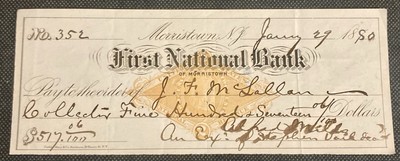 No. 352 Morristown NJ Jany 29 1880
First National Bank
OF MORRISTOWN
Pay to the order of J. F. McCollum
Collector Five Hundred & Seventeen 06/ Dollars
$517.06/100 An Ex. of Stephen Vail decd